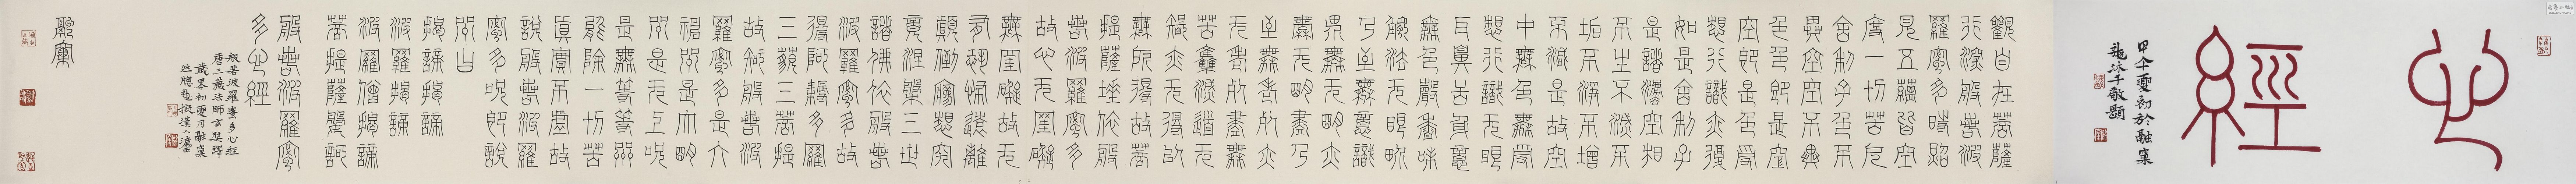 心經
觀自在菩薩
行深般若波
羅蜜多時照
見五蘊皆空
度一切苦厄
舍利子色不
異空空不異
色色即是空
空即是色受
想行識亦復
如是舍利子
是諸法空相
不生不滅不
垢不淨不增
不減是故空
中無色無受
想行識无眼
耳鼻舌身意
無色聲香味
觸法无眼界
乃至無意識
界無无明亦
無无明盡乃
至無老死亦
无老死盡無
苦集滅道无
智亦无得以
無所得故菩
提薩埵依般
若波羅蜜多
故心无罣礙
無罣礙故无
有恐怖遠離
顛倒夢想究
竟涅槃三世
諸佛依般若
波羅蜜多故
得阿耨多羅
三藐三菩提
故知般若波
羅蜜多是大
神咒是大明
咒是无上咒
是無等等咒
能除一切苦
真實不虛故
說般若波羅
蜜多咒即說
咒曰
揭諦揭諦
波羅揭諦
波羅僧揭諦
菩提薩婆訶
般若波羅蜜
多心經
般若波羅蜜多心經
唐三藏法師玄奘譯